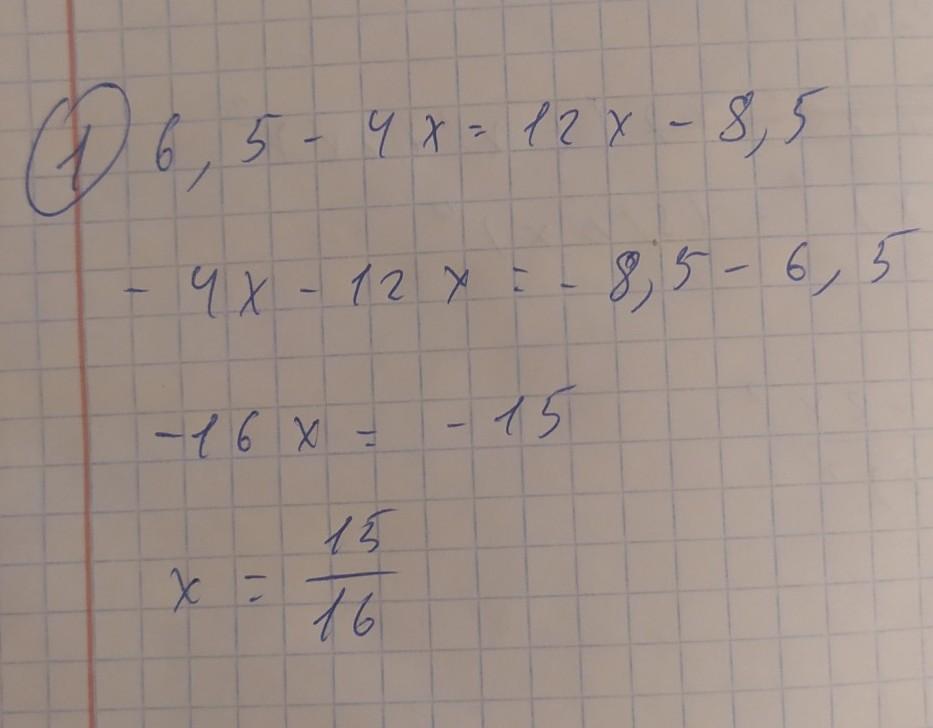 1 6,5 - 4x = 12x - 8,5
- 4x - 12x = - 8,5 - 6,5
-16x = - 15
x = 15/16